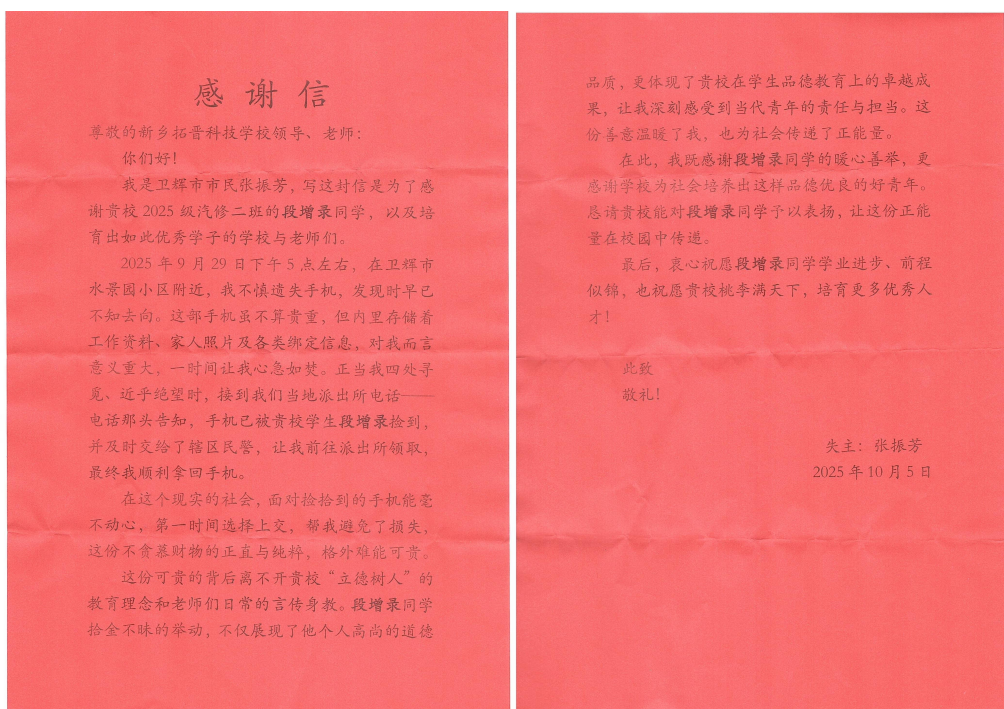 感谢信
尊敬的新乡拓晋科技学校领导、老师：
你们好！
我是卫辉市市民张振芳，写这封信是为了感
谢贵校 2025 级汽修二班的段增录同学，以及培
育出如此优秀学子的学校与老师们。
2025 年 9 月 29 日下午 5 点左右，在卫辉市
水景园小区附近，我不慎遗失手机，发现时早已
不知去向。这部手机虽不算贵重，但内里存储着
工作资料、家人照片及各类绑定信息，对我而言
意义重大，一时间让我心急如焚。正当我四处寻
觅、近乎绝望时，接到我们当地派出所电话——
电话那头告知，手机已被贵校学生段增录捡到，
并及时交给了辖区民警，让我前往派出所领取，
最终我顺利拿回手机。
在这个现实的社会，面对捡拾到的手机能毫
不动心，第一时间选择上交，帮我避免了损失，
这份不贪慕财物的正直与纯粹，格外难能可贵。
这份可贵的背后离不开贵校“立德树人”的
教育理念和老师们日常的言传身教。段增录同学
拾金不昧的举动，不仅展现了他个人高尚的道德
品质，更体现了贵校在学生品德教育上的卓越成
果，让我深刻感受到当代青年的责任与担当。这
份善意温暖了我，也为社会传递了正能量。
在此，我既感谢段增录同学的暖心善举，更
感谢学校为社会培养出这样品德优良的好青年。
恳请贵校能对段增录同学予以表扬，让这份正能
量在校园中传递。
最后，衷心祝愿段增录同学学业进步、前程
似锦，也祝愿贵校桃李满天下，培育更多优秀人
才！
此致
敬礼！
失主：张振芳
2025 年 10 月 5 日